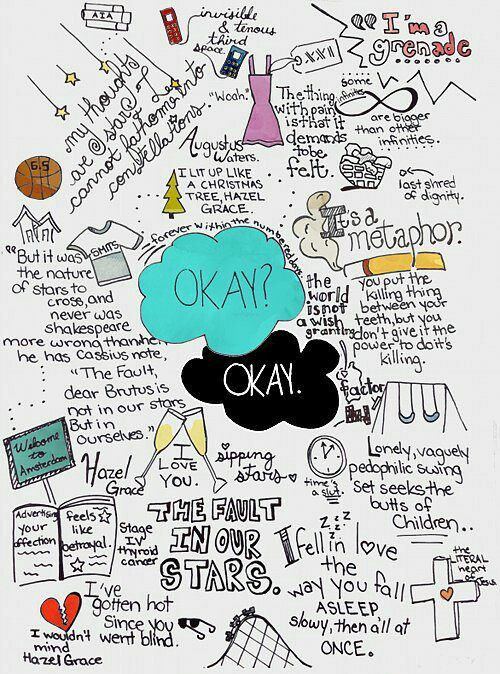 AIA
invisible
& tenous
third
space.
"I'm a
grenade
my thoughts
are @ stars @ I
cannot fathom into
constellations.
"Woah."
The thing
with pain
is that it
demands
to be
felt.
some
infinities
are bigger
than other
infinities.
Augustus
Waters.
6.5
I LIT UP LIKE
A CHRISTMAS
TREE, HAZEL
GRACE.
last shred
of dignity.
SMITS
forever within the numbered days.
It's a
metaphor.
"But it was
the nature
of stars to
cross, and
never was
shakespeare
more wrong than when
he has Cassius note,
"The Fault,
dear Brutus is
not in our stars
But in
ourselves."
OKAY?
OKAY.
the
world
is not
a wish
granting
factory
you put the
killing thing
between your
teeth, but you
don't give it the
power to do it's
killing.
Welcome
to
Amsterdam
Hazel
Grace
I
LOVE
YOU.
sipping
stars
time's
a slut.
Lonely, vaguely
pedophilic swing
set seeks the
butts of
Children..
Advertising
your
affection
feels
like
betrayal.
Stage
IV
thyroid
cancer
THE FAULT
IN OUR
STARS.
zzzz
I fell in love
the
way you fall
ASLEEP
slowy, then all at
ONCE.
the
LITERAL
heart
of Jesus
I wouldn't
mind
Hazel Grace
I've
gotten hot
Since you
went blind.